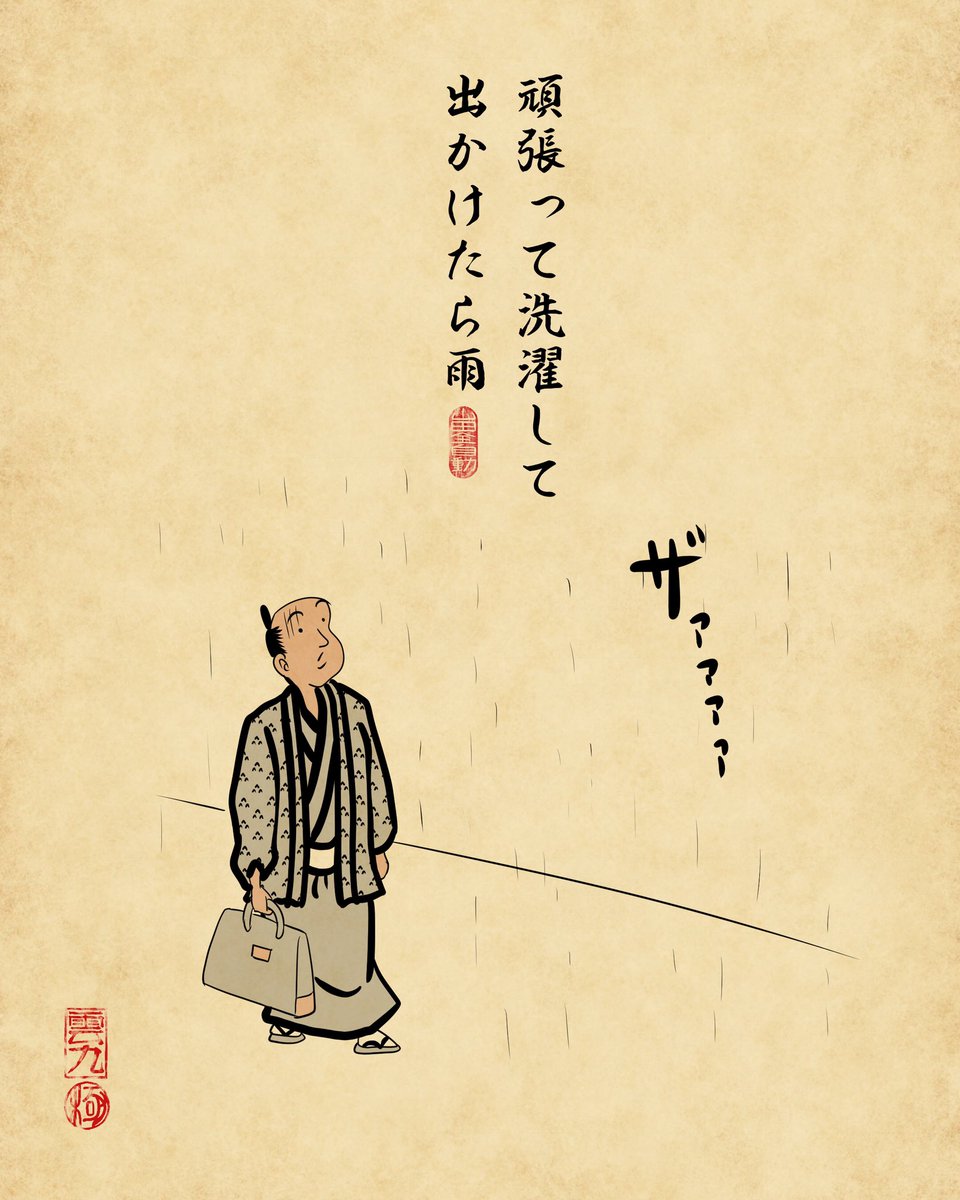 頑張って洗濯して
出かけたら雨
ザァァァァ